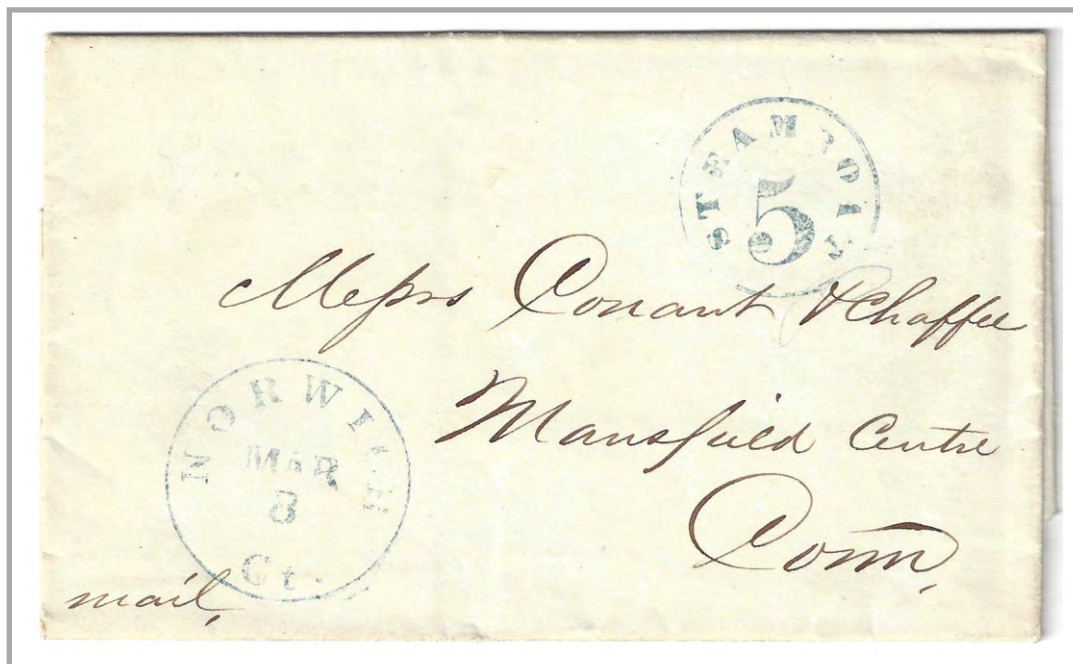 STEAMBOAT
5
Messrs Conant & Chaffee
Mansfield Centre
Conn,
NORWICH
MAR
8
Ct.
mail,